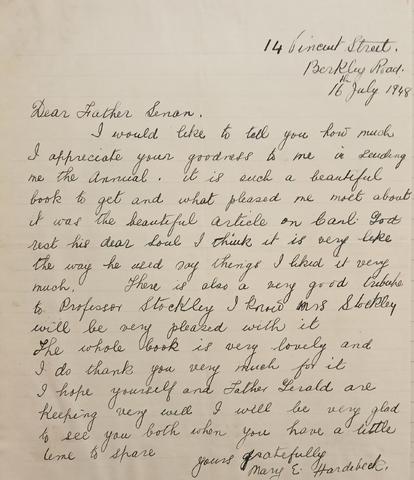 14 Vincent Street.
Berkley Road.
16th July 1948
Dear Father Senan.
I would like to tell you how much
I appreciate your goodness to me in sending
me the Annual. it is such a beautiful
book to get and what pleased me most about
it was the beautiful article on Carl. God
rest his dear Soul I think it is very like
the way he used say things I liked it very
much. There is also a very good tribute
to Professor Stockley I know Mrs Stockley
will be very pleased with it
The whole book is very lovely and
I do thank you very much for it
I hope yourself and Father Gerald are
keeping very well I will be very glad
to see you both when you have a little
time to spare
yours gratefully
Mary E. Hardebeck.